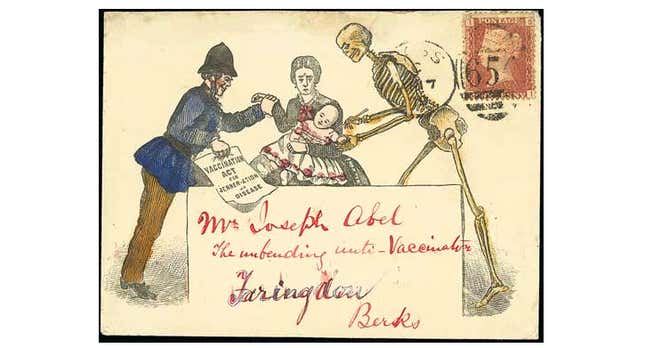 POSTAGE
VACCINATION
ACT
FOR
JENNER-ATION
OF
DISEASE
Mr Joseph Abel
The unbending anti-Vaccinator
Faringdon
Berks